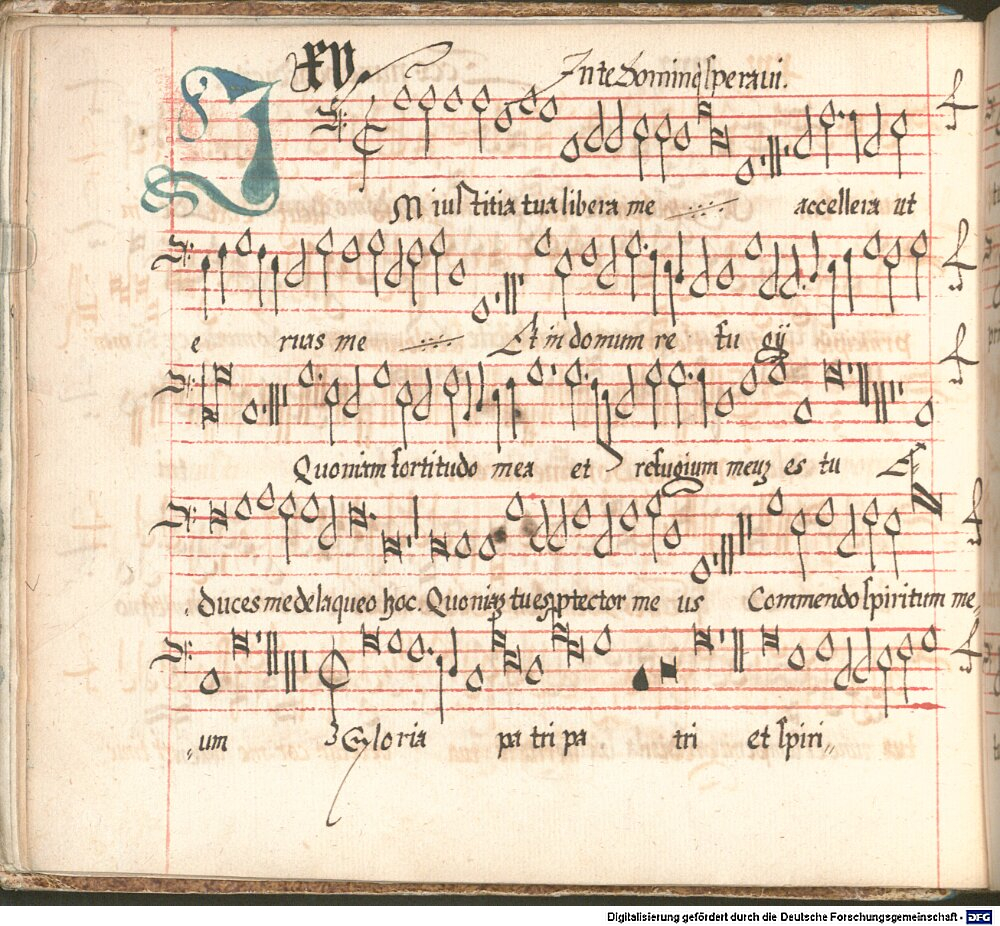 XV In te Domino speravi.
IM iustitia tua libera me accellera ut
e ruas me Et in domum re fu gij
Quoniam fortitudo mea et refugium meuz es tu E
duces me de laqueo hoc. Quoniaz tu es ptector me us Commendo spiritum me„
„um 3 Gloria pa tri pa tri et spiri„
Digitalisierung gefördert durch die Deutsche Forschungsgemeinschaft - DFG